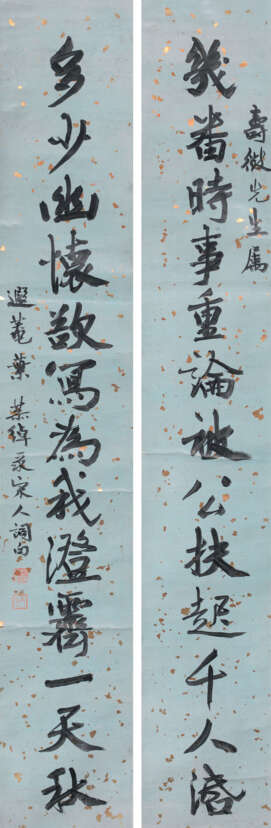 幾番時事重論被公扶起千人活
壽微先生屬
多少幽懷欲寫為我澄霽一天秋
遐菴葉恭綽集宋人詞句